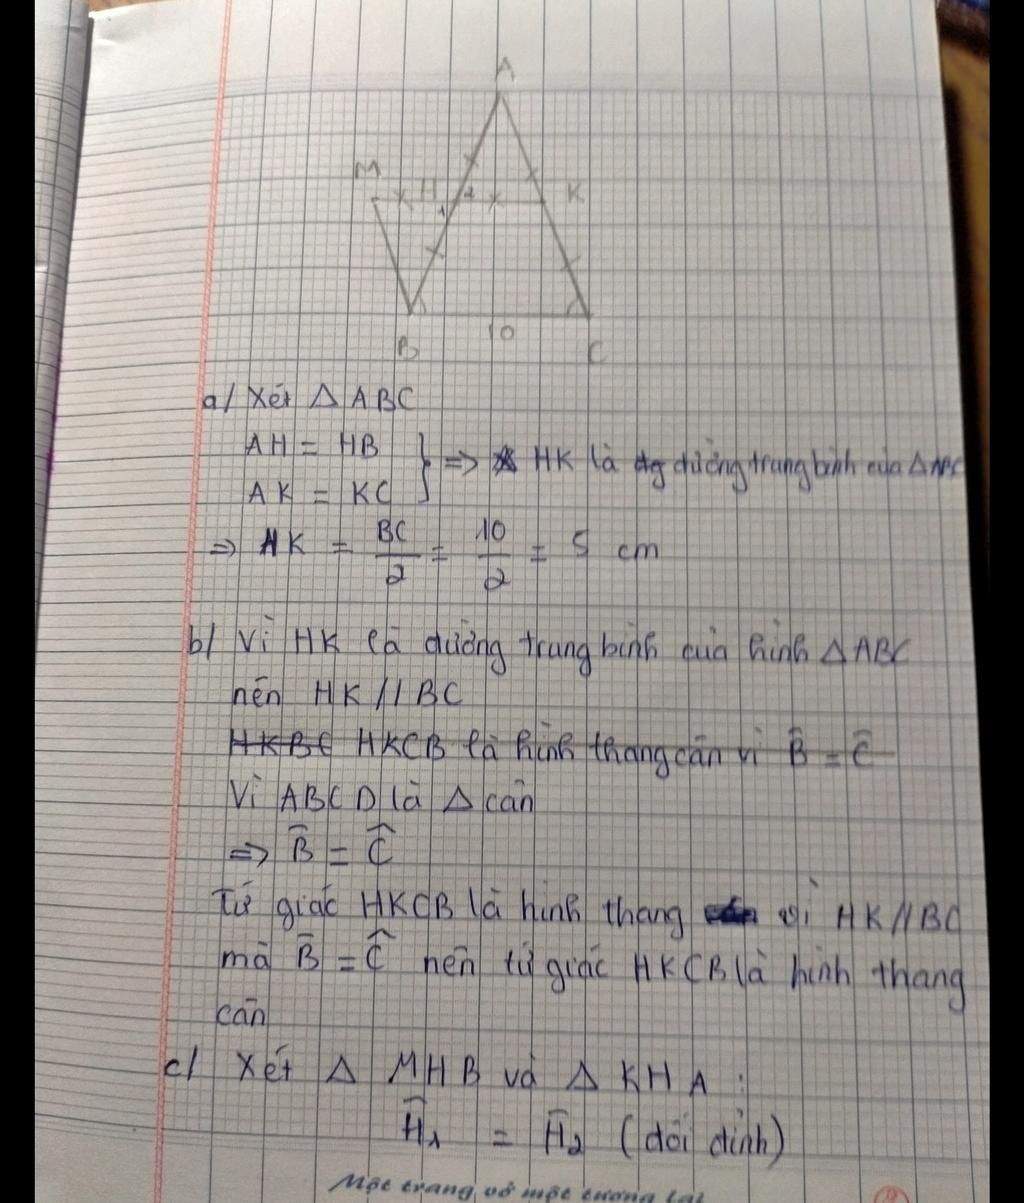 A
M H 2 K
1
B 10 C
a/ Xét Δ ABC
AH = HB
AK = KC } => HK là đường trung bình của Δ ABC
=> HK = BC/2 = 10/2 = 5 cm
b/ Vì HK là đường trung bình của hình Δ ABC
nên HK // BC
HKBC HKCB là hình thang cân vì B̂ = Ĉ
Vì ABCD là Δ cân
=> B̂ = Ĉ
Tứ giác HKCB là hình thang vì HK // BC
mà B̂ = Ĉ nên tứ giác HKCB là hình thang
cân
c/ Xét Δ MHB và Δ KHA :
Ĥ1 = Ĥ2 (đối đỉnh)
Một trang vở một tương lai